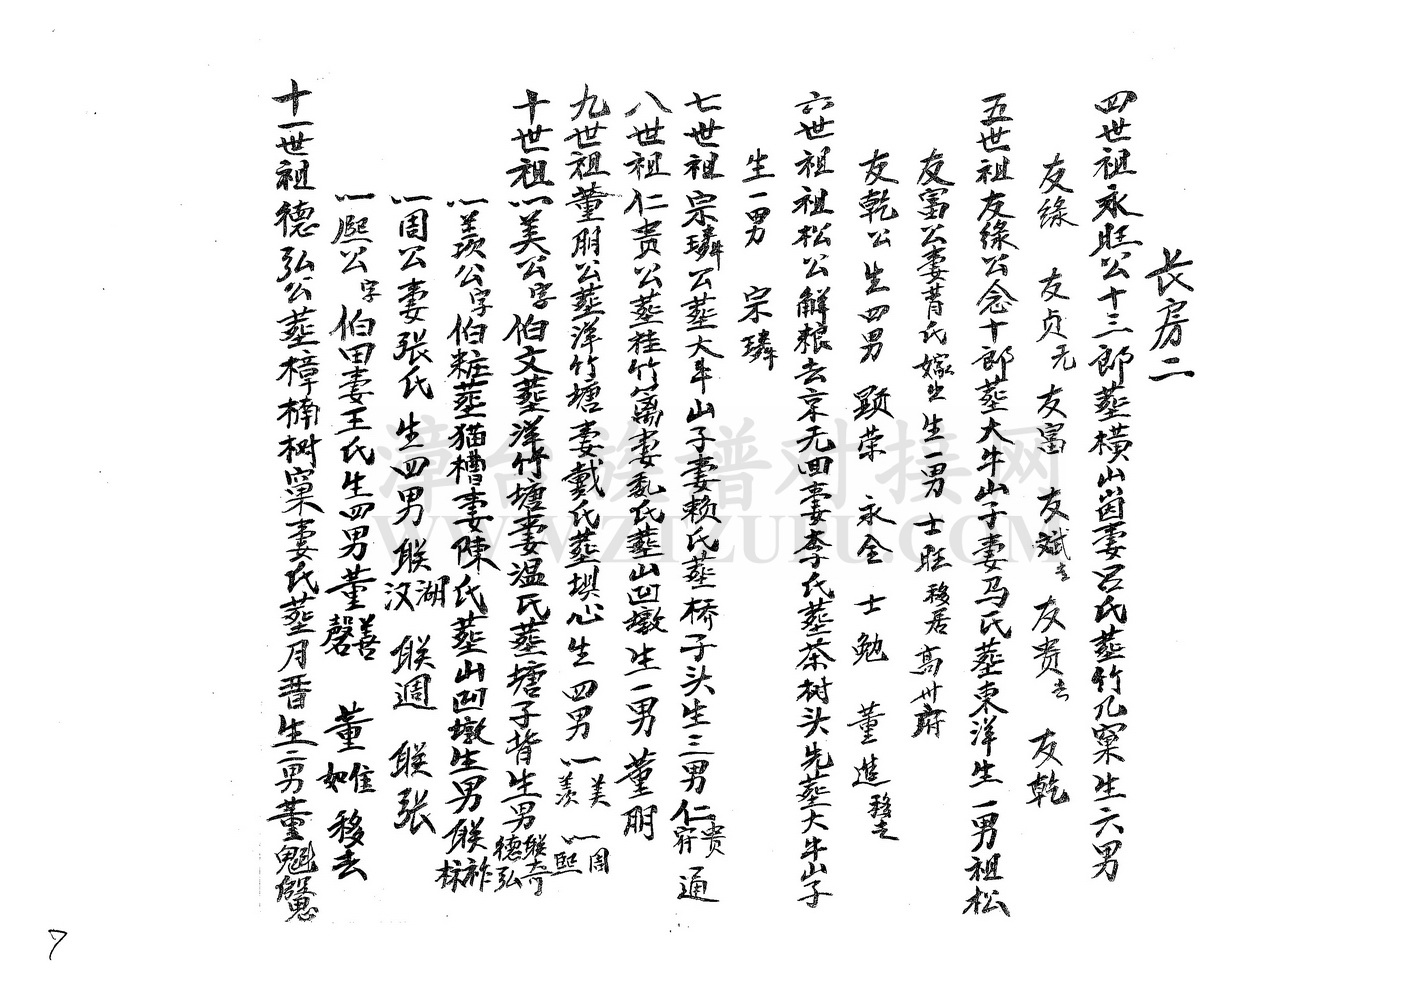 长房二
四世祖永旺公十三郎葬横山崮妻吕氏葬竹几窠生六男
友缘 友贞无 友富 友斌去 友贵去 友乾
五世祖友缘公念十郎葬大牛山子妻马氏葬東洋生一男祖松
友富公妻昔氏嫁生一男士旺移居高州府
友乾公生四男 顕荣 永全 士勉 董進移走
六世祖祖松公解粮去京无回妻李氏葬茶树头先葬大牛山子
生一男 宗璘
七世祖宗璘公葬大牛山子妻赖氏葬桥子头生三男仁贵 通
八世祖仁贵公葬桂竹篱妻魏氏葬山凹墩生一男董朋
九世祖董朋公葬洋竹塘妻戴氏葬垻心生四男 以美 以羨 以周 以熙
十世祖以美公字伯文葬洋竹塘妻温氏葬塘子背生男联奇 德弘
以羨公字伯粧葬猫槽妻陳氏葬山凹墩生男联祚
以周公妻张氏生四男联湖 汉 联週 联张
以熙公字伯田妻王氏生四男董善 磬 董 如 惟移去
十一世祖德弘公葬樟楠树窠妻氏葬月晋生二男董魁
7
漳台族谱对接网
WWW.ZTZUPU.COM